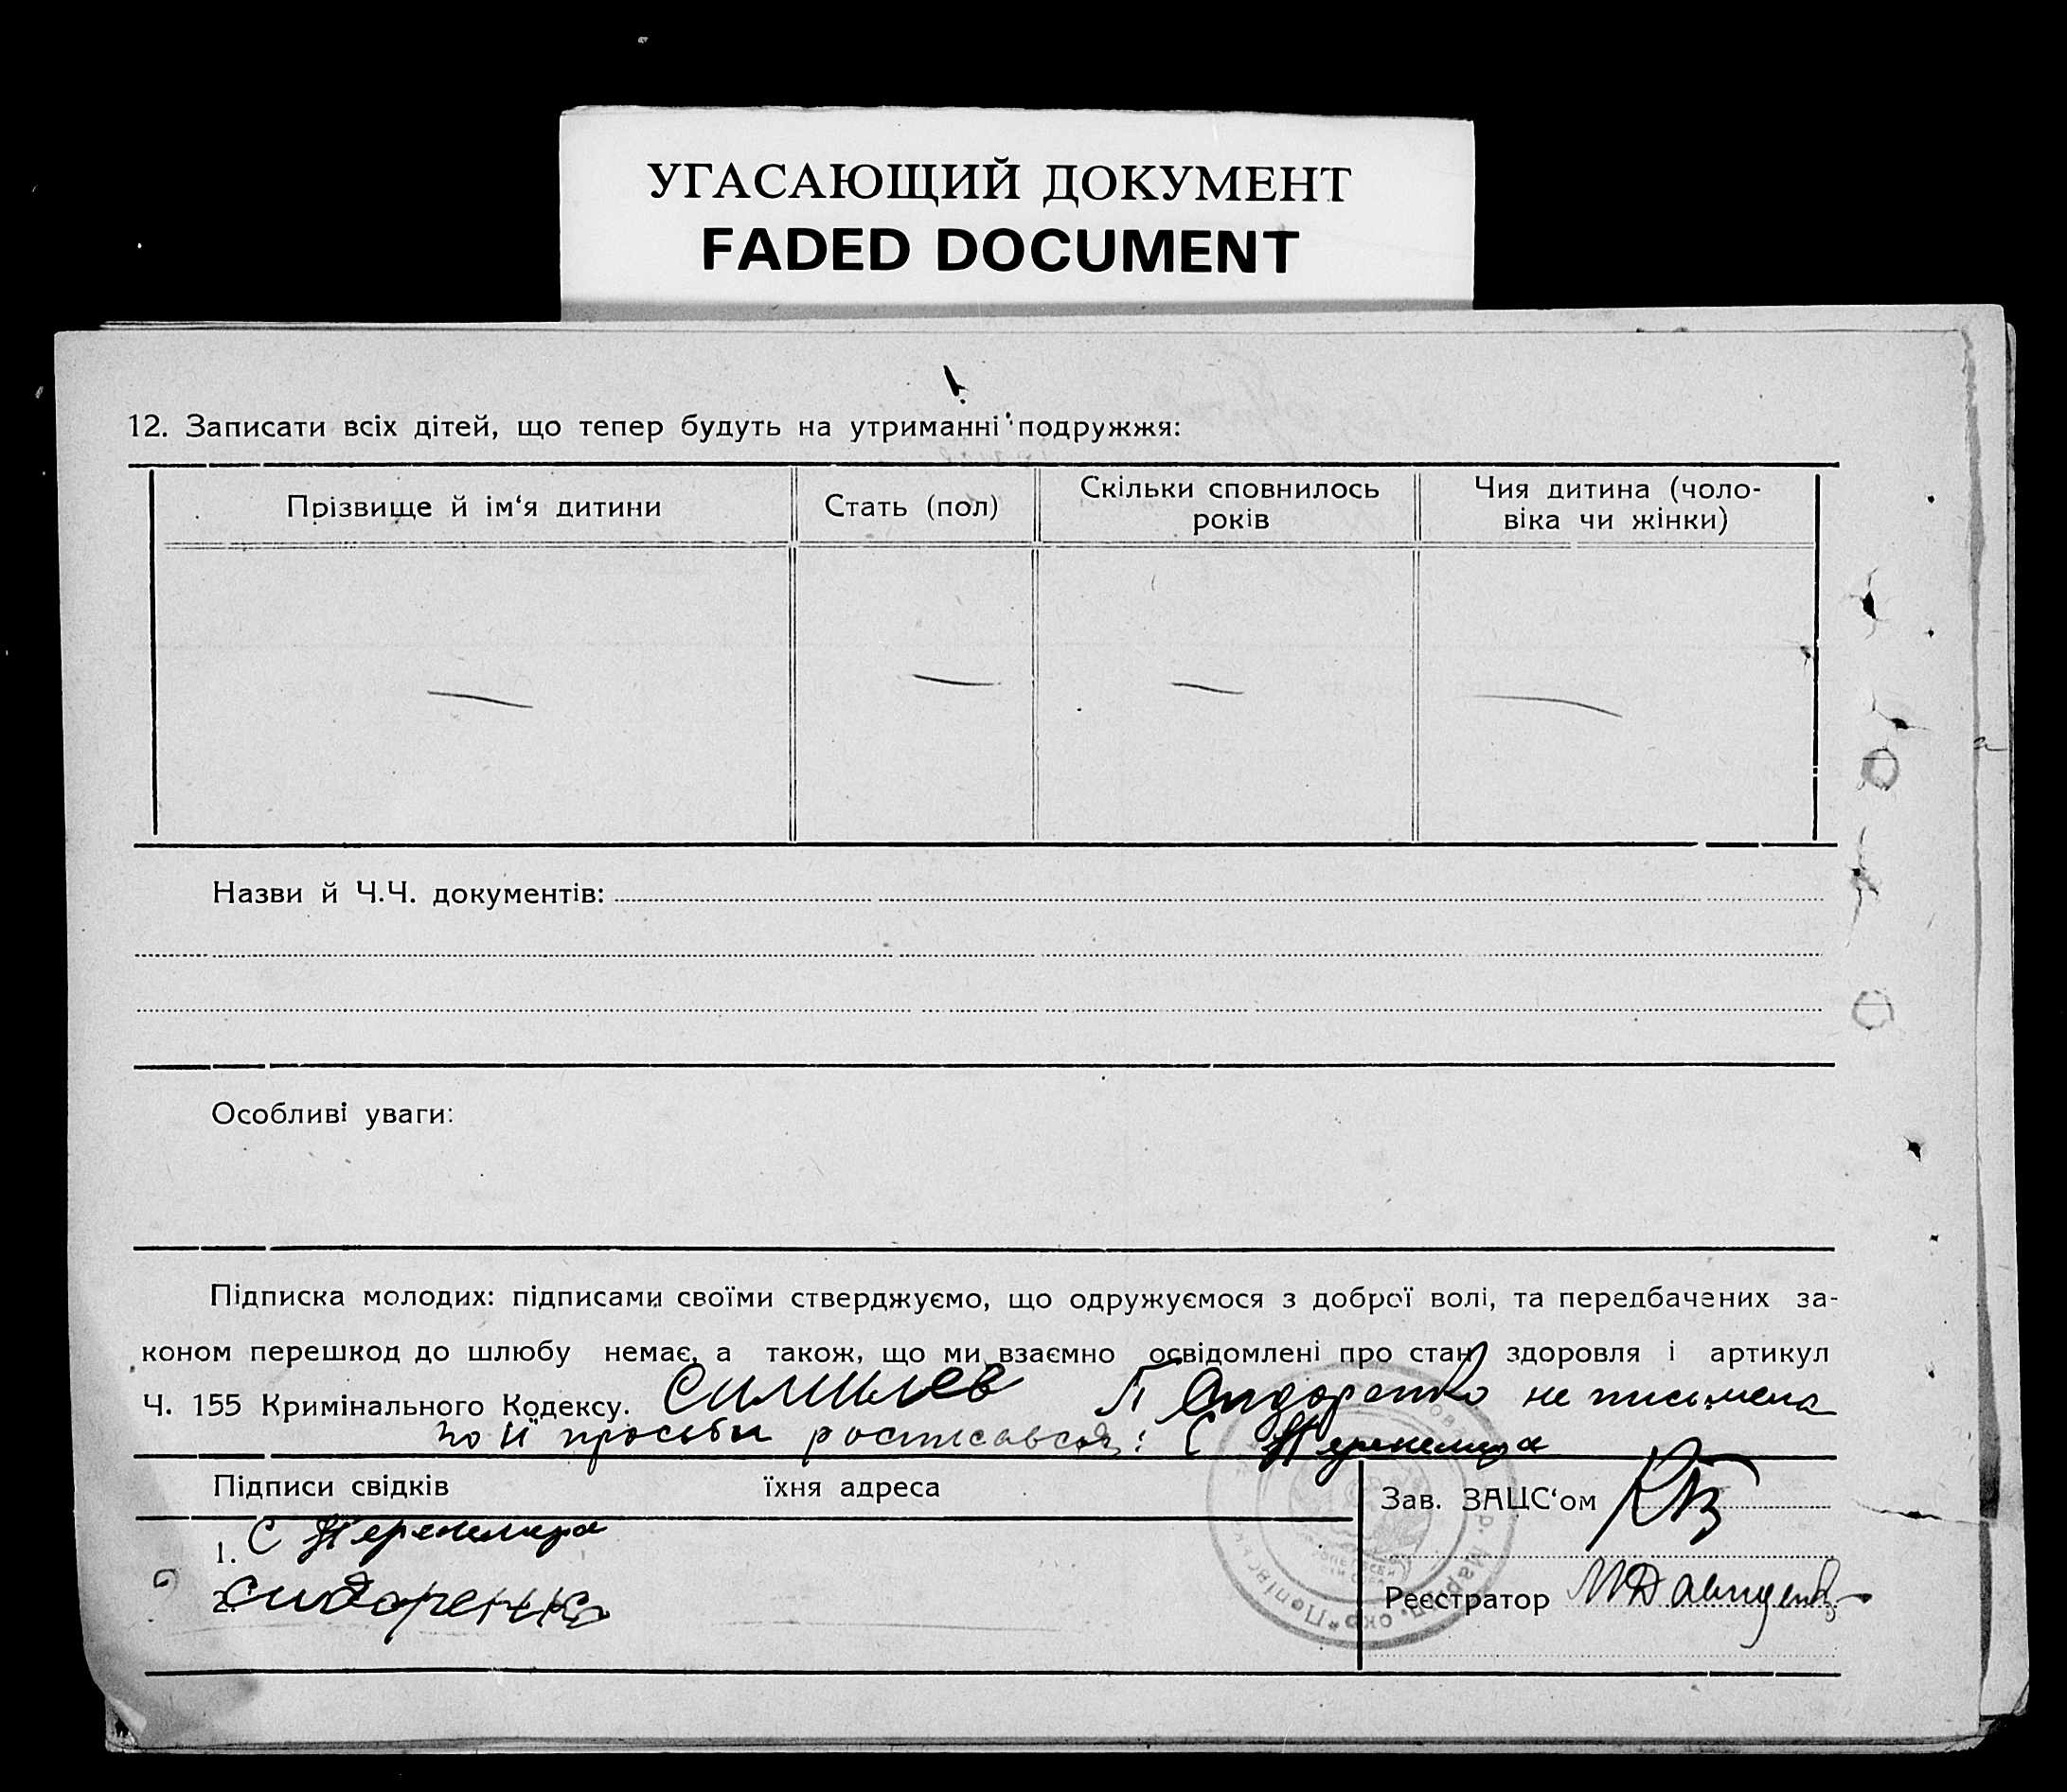 УГАСАЮЩИЙ ДОКУМЕНТ
FADED DOCUMENT
12. Записати всіх дітей, що тепер будуть на утриманні подружжя:
Прізвище й ім'я дитини
Стать (пол)
Скільки сповнилось
років
Чия дитина (чоло-
віка чи жінки)
Назви й Ч.Ч. документів:
Особливі уваги:
Підписка молодих: підписами своїми стверджуємо, що одружуємося з доброї волі, та передбачених за-
коном перешкод до шлюбу немає, а також, що ми взаємно освідомлені про стан здоровля і артикул
Ч. 155 Кримінального Кодексу. П Сидоренко не письмена
по її просьби росписався: С Перепелица
Підписи свідків
їхня адреса
1. С Перепелица
2. Сидоренко
Зав. ЗАЦС'ом
Реєстратор